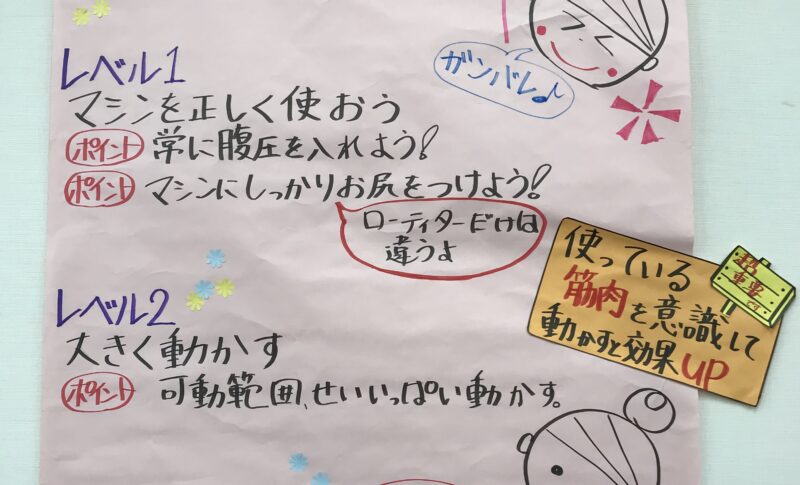 レベル1
マシンを正しく使おう
ポイント 学に腹圧を入れよう!
ポイント マシンにしっかりお尻をつけよう!
ローティターだけは
違うよ
ガンバレ♪
レベル2
大きく動かす
ポイント 可動範囲、せいいっぱい動かす。
使っている
筋肉を意識して
動かすと効果UP
超
重要
です